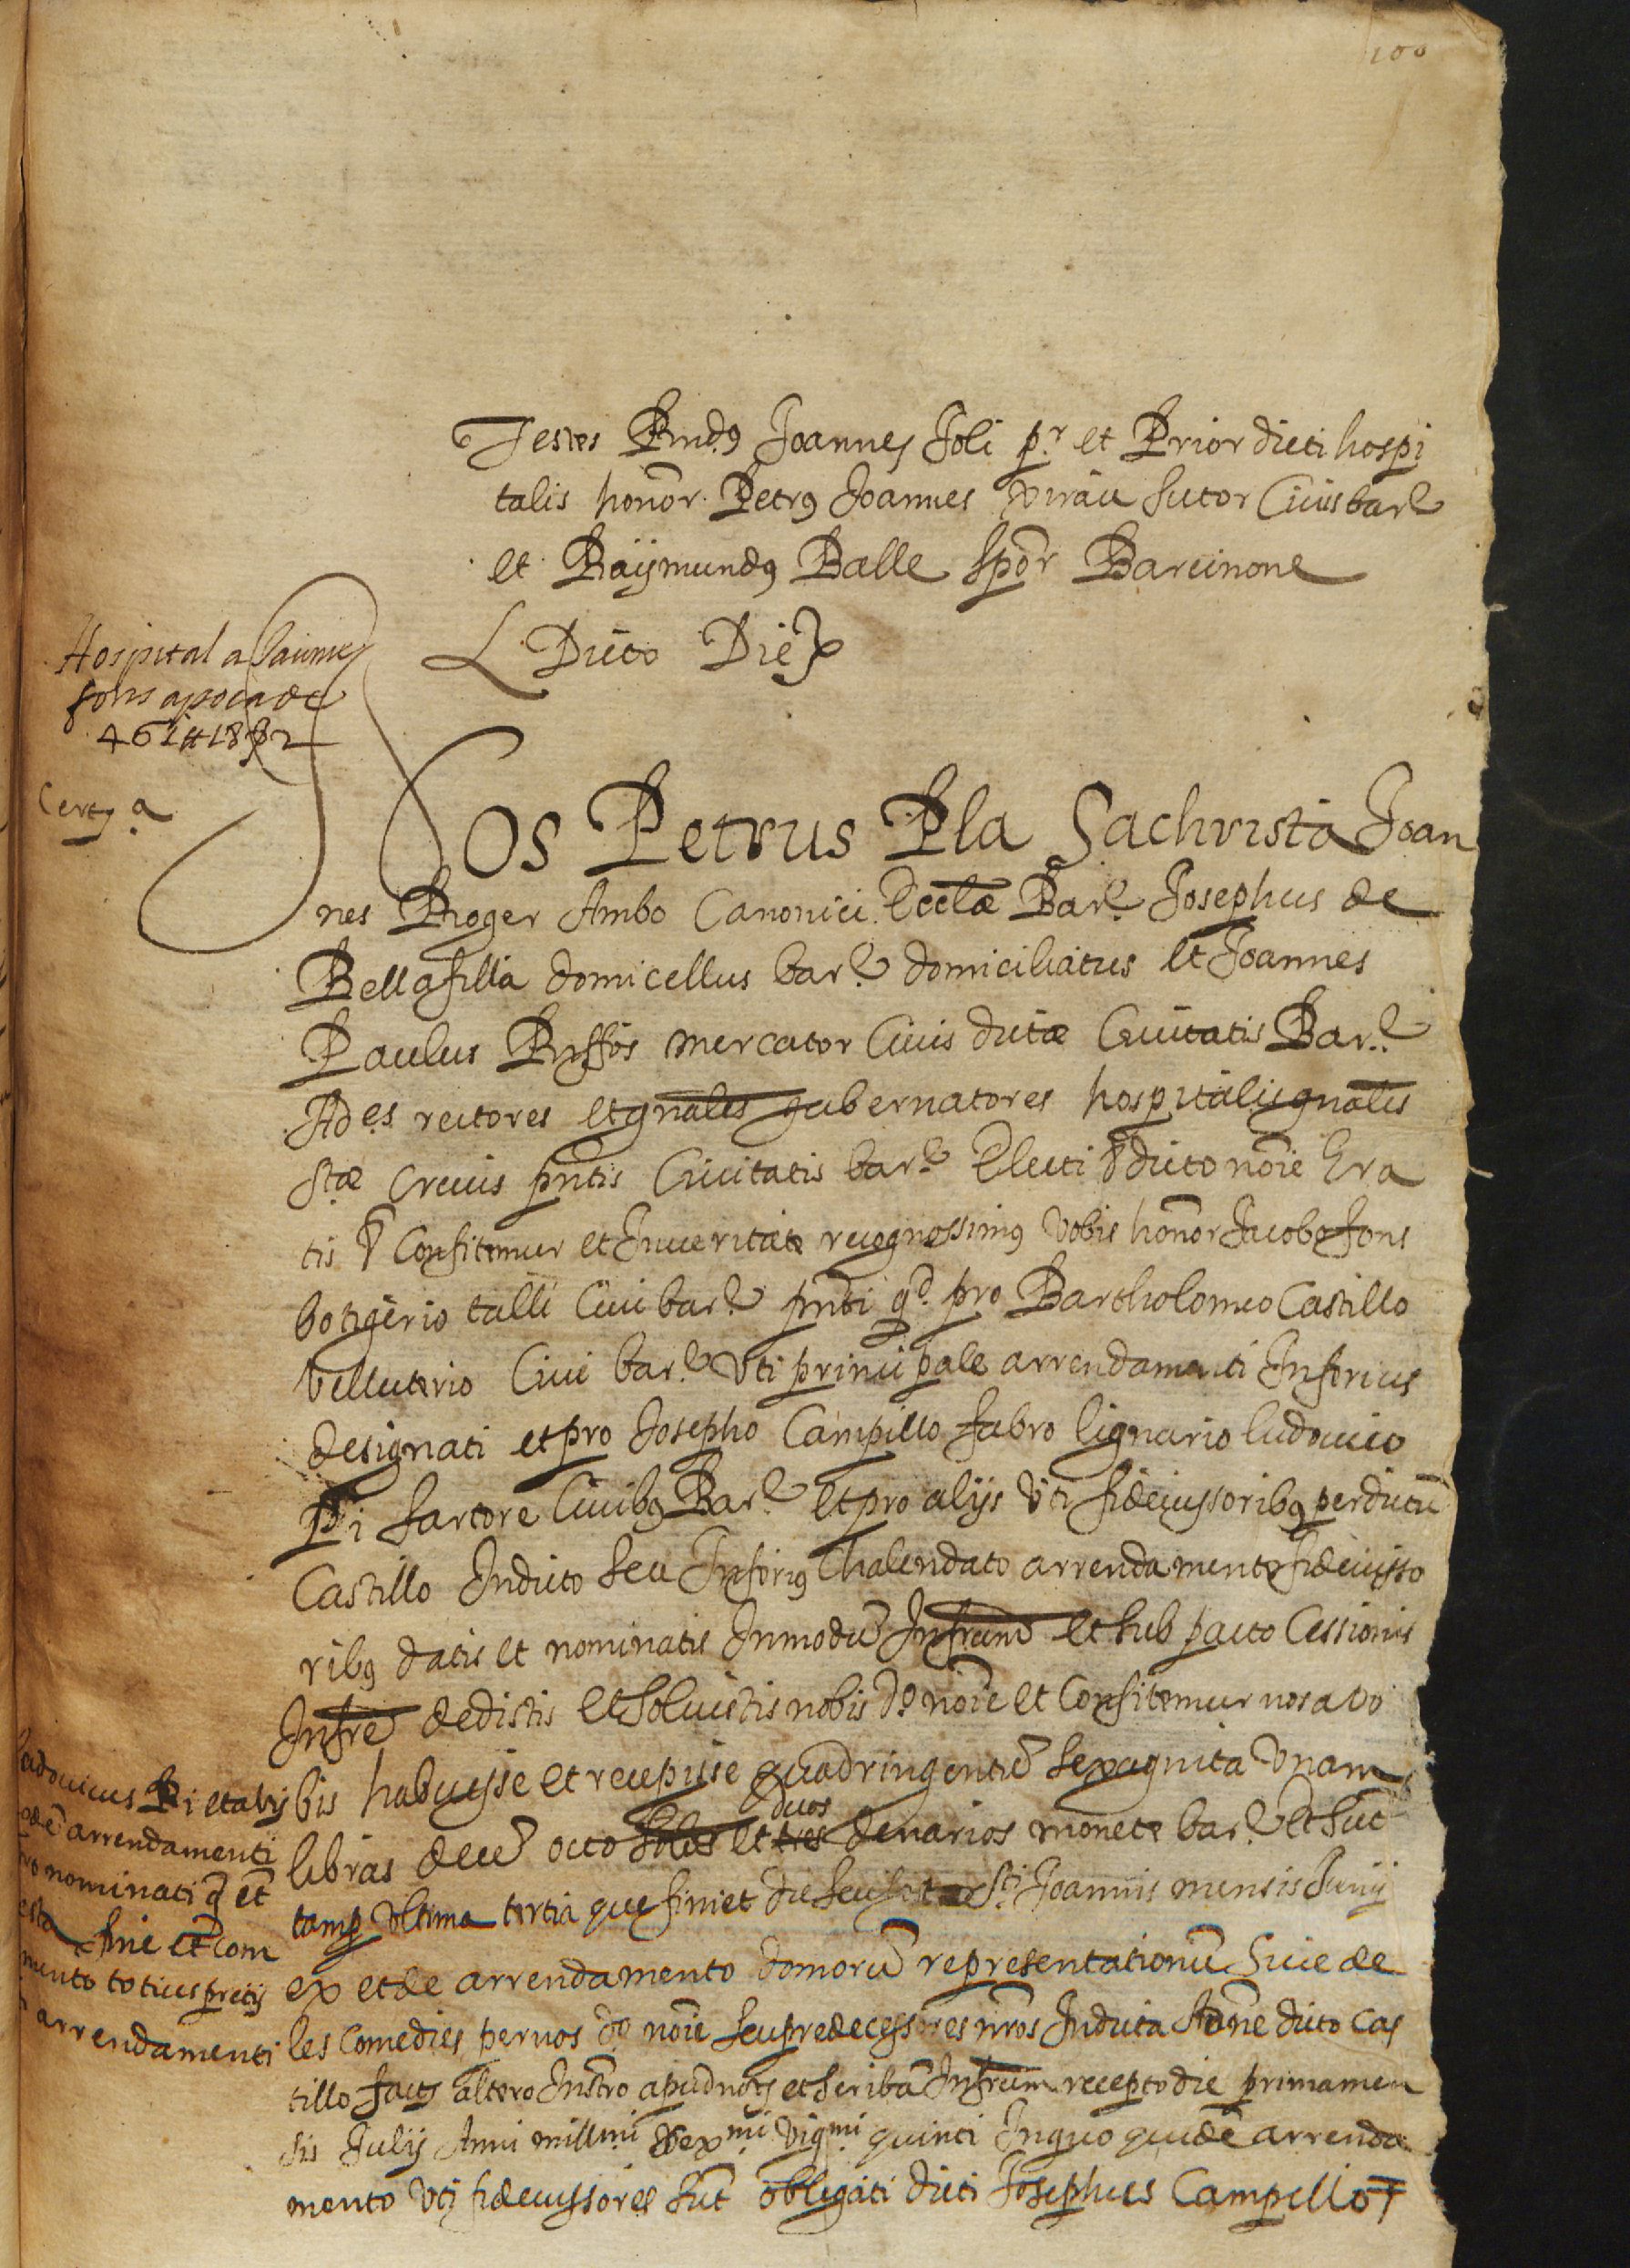 100
Testes Rnds Joannes Joli pr et Prior dicti hospi
talis honor. Petrus Joannes sutor Civis barl
et Raymundus Balle spōr Barcinone
Dicto Die
Hospital a Jaume
fons apoca de
461 ₶ 18 β 2
Cert a
Nos Petrus Pla Sachrista Joan
nes Roger Ambo Canonici Ecclæ Barl Josephus de
Bellafilla domicellus barl domiciliatus et Joannes
Paulus Riffos mercator Civis dictæ Civitatis Barl
Ad es rectores et gnales gubernatores hospitalis gnalis
Stæ Crucis pntis Civitatis barl Electi dicto noīe Gra
tis & Confitemur et Inveritate recognossimus vobis honor Jacobo fons
botigerio talli Civi barl pnti qd pro Bartholomeo Castillo
velluterio Civi barl uti principale arrendamenti Inferius
designati et pro Josepho Campillo fabro lignario ludovico
Pi sartore Civibus Barl et pro alijs uti fideiussoribus per dictū
Castillo Indicto seu Inferius Chalendato arrendamento fideiusso
ribus datis et nominatis Inmodū Infrum et sub pacto Cessionis
Infre dedistis et solvistis nobis do noīe et Confitemur nos a vo
bis habuisse et recepisse quadringentū sexaginta unam
duos
libras decē octo solidos et tres denarios monete barl et sūt
tamq ultima tertia que finiet die seu festo Sti Joannis mensis Junij
ex et de arrendamento domorū representationū sive de
les Comedies per nos do noīe seu predecessores nros Indicta Adōne dicto Cas
tillo facto altero Instro apud not et scribā Infrum recepto die prima men
sis Julij Anni millmi sexmi vigmi quinti In quo quidē arrenda
mento uti fideiussores sūt obligati dicti Josephus Campillo
Ludovicus Pi et alij
arrendamenti
nominati q et
fine et com
mento totius pretij
arrendamenti